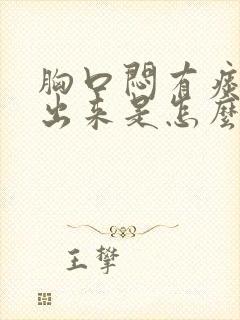 胸口悶有痰
出來是怎麼
王攀